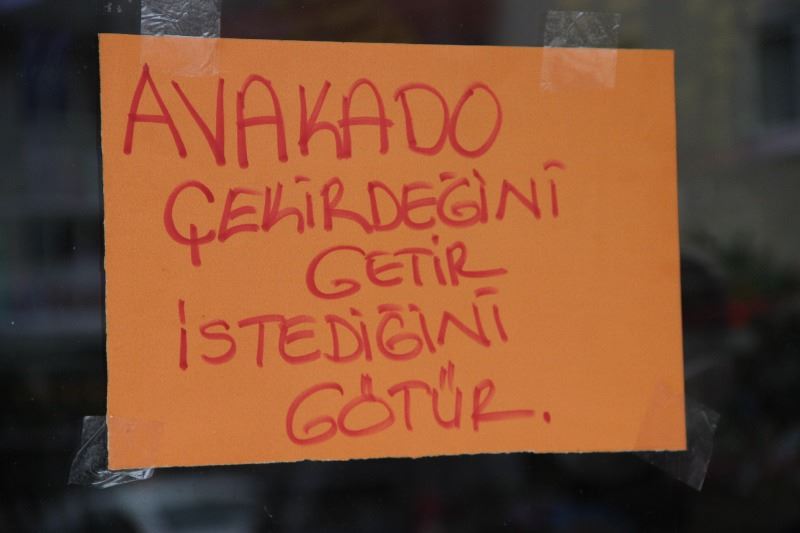 AVAKADO
ÇEKİRDEĞİNİ
GETİR
İSTEDİĞİNİ
GÖTÜR.